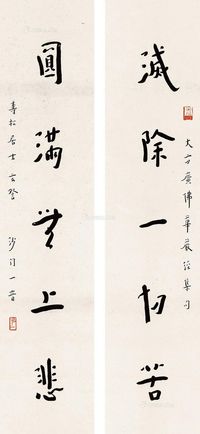 大方廣佛華嚴經集句
滅除一切苦
圓滿無上悲
壽松居士玄鑒
沙門一音